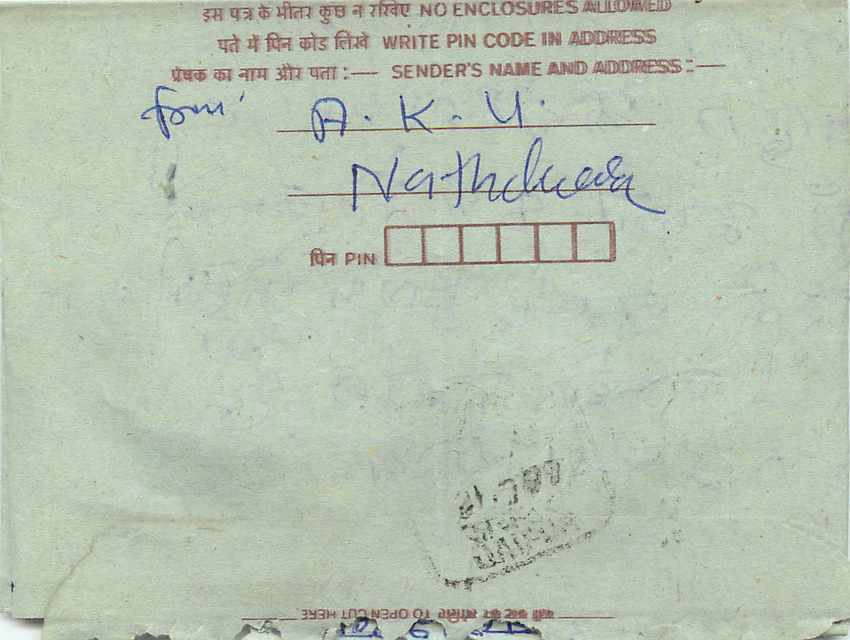 इस पत्र के भीतर कुछ न रखिए NO ENCLOSURES ALLOWED
पते में पिन कोड लिखें WRITE PIN CODE IN ADDRESS
प्रेषक का नाम और पता :— SENDER'S NAME AND ADDRESS :—
from'
A. K. U.
Nathdwara
पिन PIN
TO OPEN CUT HERE